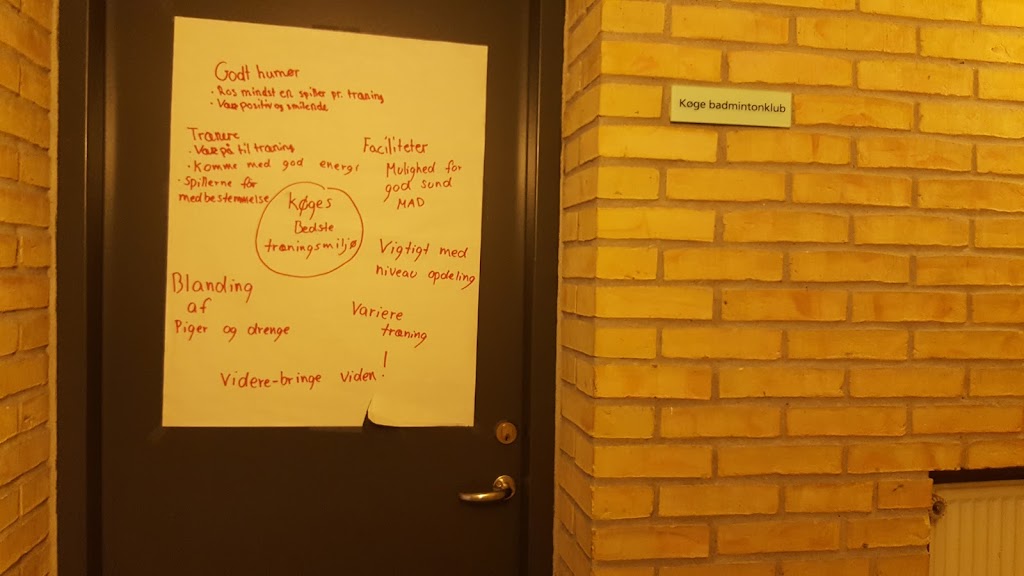 Godt humør
• Ros mindst en spiller pr. træning
• Vær positiv og smilende
Trænere
• Vær på til træning
• Komme med god energi
• Spillerne får
medbestemmelse
Køges
Bedste
træningsmiljø
Faciliteter
Mulighed for
god sund
MAD
Vigtigt med
niveau opdeling
Blanding
af
Piger og drenge
Variere
træning
Videre-bringe viden!
Køge badmintonklub